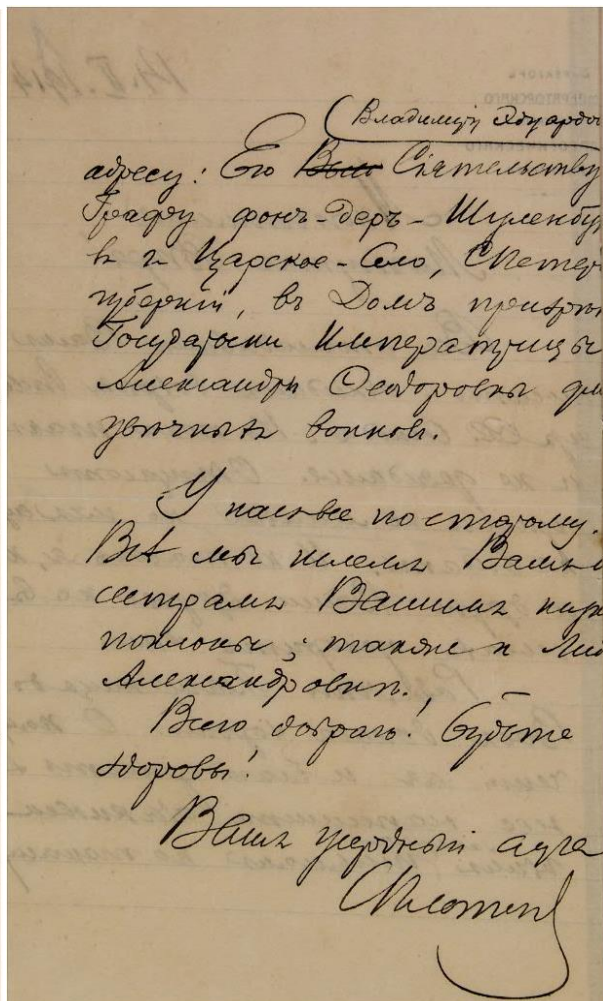 Владиміру Эдуардо
адресу: Его Сіятельству
Графу фонъ-деръ-Шуленбу
въ г. Царское-Село, СПетер
губерніи, въ Домъ призрѣн
Государыни Императрицы
Александры Ѳеодоровны для
увѣчныхъ воиновъ.
У насъ все по старому.
Всѣ мы шлемъ Вамъ и
сестрамъ Вашимъ низк
поклоны; также и Ли
Александровнѣ.
Всего добраго! Будьте
здоровы!
Вашъ усердный слуга